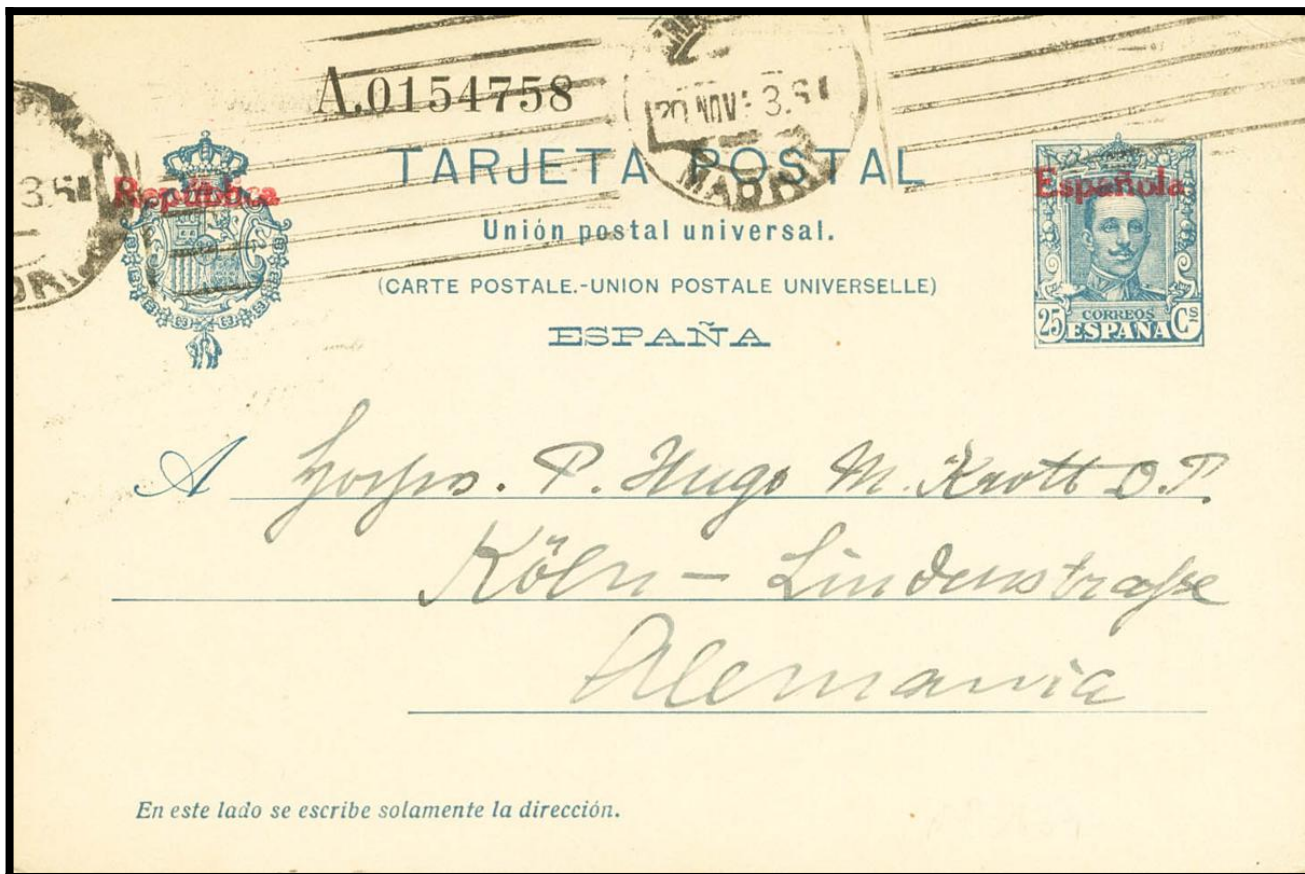 A.0154758
TARJETA POSTAL
República
Española
Unión postal universal.
(CARTE POSTALE.-UNION POSTALE UNIVERSELLE)
ESPAÑA
25 CORREOS ESPAÑA Cs
20 NOV
MADRID
A P. Hugo M. Krott O.P.
Köln - Lindenstraße
Alemania
En este lado se escribe solamente la dirección.